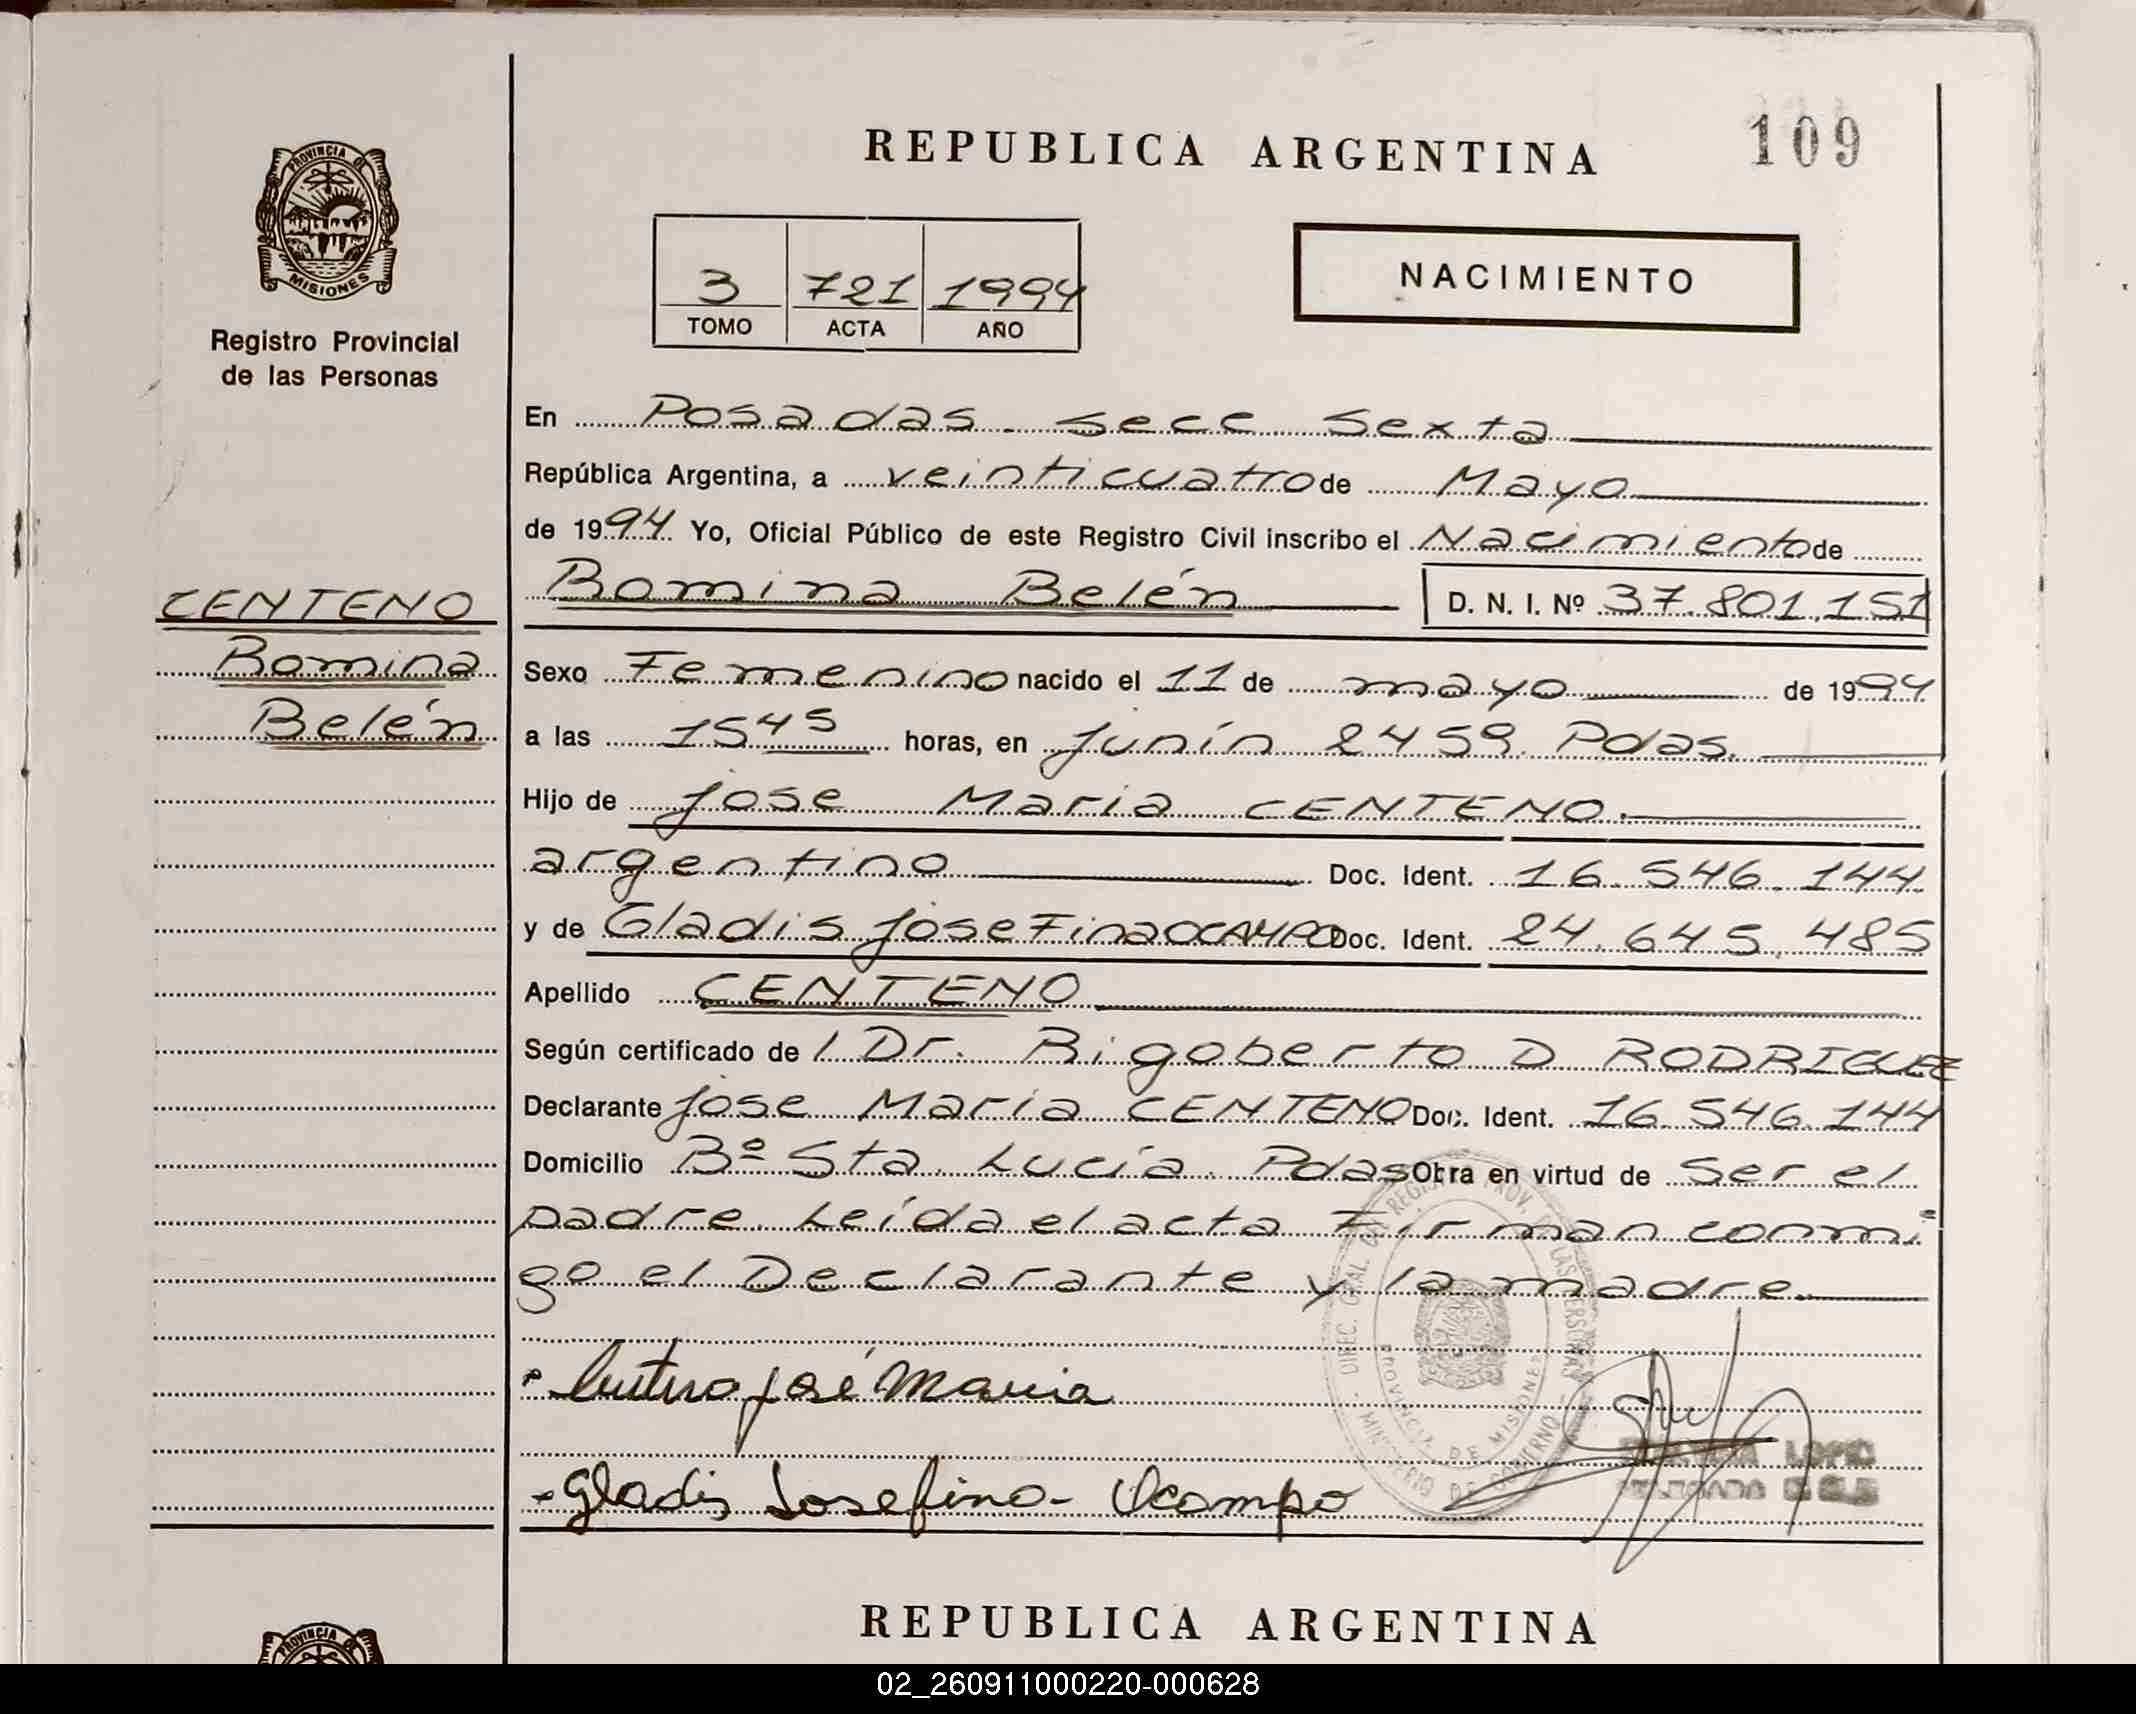 REPUBLICA ARGENTINA
109
PROVINCIA DE
MISIONES
Registro Provincial
de las Personas
3 721 1994
TOMO ACTA AÑO
NACIMIENTO
En Posadas. Secc Sexta
República Argentina, a veinticuatro de Mayo
de 1994 Yo, Oficial Público de este Registro Civil inscribo el Nacimiento de
Romina Belén D. N. I. Nº 37.801.151
CENTENO
Romina
Belén
Sexo Femenino nacido el 11 de mayo de 1994
a las 1545 horas, en Junín 2459 Pdas.
Hijo de Jose Maria CENTENO.
argentino Doc. Ident. 16.546.144
y de Gladis Josefina OCAMPO Doc. Ident. 24.645.485
Apellido CENTENO
Según certificado de l Dr. Rigoberto D RODRIGUEZ
Declarante Jose Maria CENTENO Doc. Ident. 16.546.144
Domicilio Bº Sta. Lucía. Pdas Obra en virtud de Ser el
padre. Leída el acta Firman conmi
go el Declarante y la madre.
Centeno José Maria
DIREC. GRAL. DEL REGISTRO PROV. DE LAS PERSONAS
PROVINCIA DE MISIONES
MINISTERIO DE GOBIERNO
-Gladis Josefina- Ocampo
REPUBLICA ARGENTINA
PROVINCIA DE
02_260911000220-000628